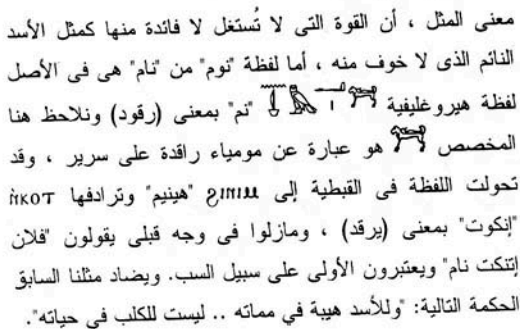 معنى المثل ، أن القوة التى لا تُستغل لا فائدة منها كمثل الأسد
النائم الذى لا خوف منه ، أما لفظة "نوم" من "نام" هى فى الأصل
لفظة هيروغليفية "نم" بمعنى (رقود) ونلاحظ هنا
المخصص هو عبارة عن مومياء راقدة على سرير ، وقد
تحولت اللفظة فى القبطية إلى "هينيم" وترادفها ⲛ̀ⲕⲟⲧ
"إنكوت" بمعنى (يرقد) ، ومازلوا فى وجه قبلى يقولون "فلان
إتنكت نام" ويعتبرون الأولى على سبيل السب. ويضاد مثلنا السابق
الحكمة التالية: "وللأسد هيبة في مماته .. ليست للكلب فى حياته".